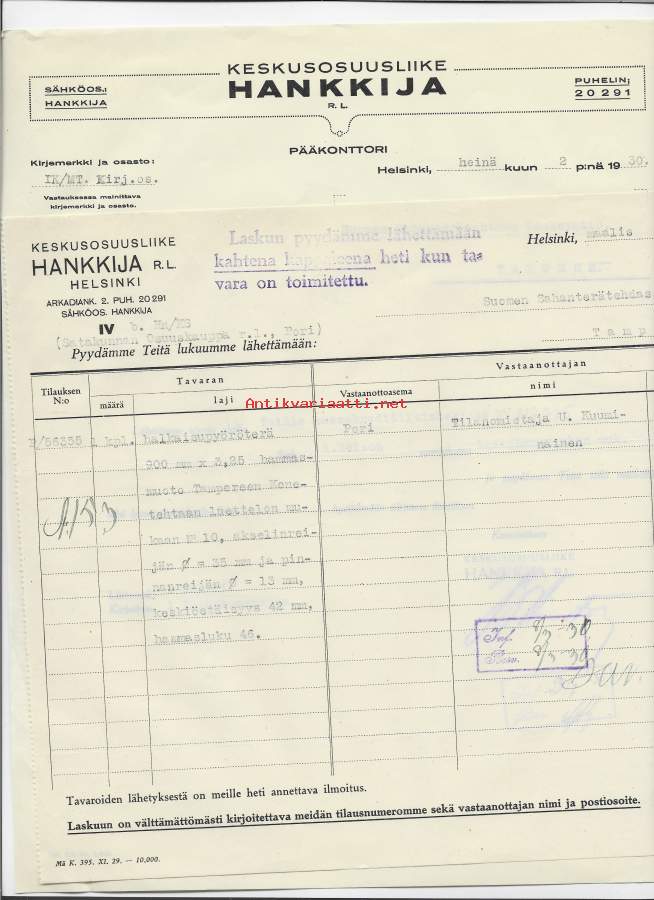 KESKUSOSUUSLIIKE
HANKKIJA
R. L.
SÄHKÖOS.:
HANKKIJA
PUHELIN:
20 291
PÄÄKONTTORI
Kirjemerkki ja osasto:
IK/MT. Kirj.os.
Vastauksessa mainittava
kirjemerkki ja osasto.
Helsinki, heinä kuun 2 p:nä 1930.
KESKUSOSUUSLIIKE
HANKKIJA R.L.
HELSINKI
ARKADIANK. 2. PUH. 20 291
SÄHKÖOS. HANKKIJA
IV b. Hn/MG
(Satakunnan Osuuskauppa r.l., Pori)
Laskun pyydämme lähettämään
kahtena heti kun ta-
vara on toimitettu.
Helsinki, maalis
Suomen Sahanterätehdas
Tamp
Pyydämme Teitä lukuumme lähettämään:
Tilauksen
N:o
Tavaran
määrä
laji
Vastaanottoasema
Vastaanottajan
nimi
Antikvariaatti.net
R/56355 1 kpl. halkaisupyöröterä
900 mm x 3,25 hammas-
muoto Tampereen Kone-
tehtaan luettelon mu-
kaan = 10, akselinrei-
jän Ø = 35 mm ja pin-
nanreijän Ø = 13 mm,
keskiöetäisyys 42 mm,
hammasluku 46.
Pori
Tilanomistaja U. Kuumi-
nainen
KESKUSOSUUSLIIKE
HANKKIJA R.L.
Tavaroiden lähetyksestä on meille heti annettava ilmoitus.
Laskuun on välttämättömästi kirjoitettava meidän tilausnumeromme sekä vastaanottajan nimi ja postiosoite.
Mä K. 395. XI. 29. — 10,000.